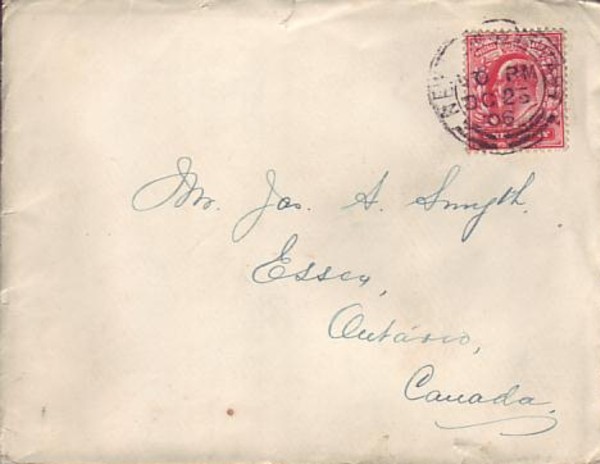 PM
OC 25
06
Mr. Jas. A. Smyth.
Essex,
Ontario,
Canada.